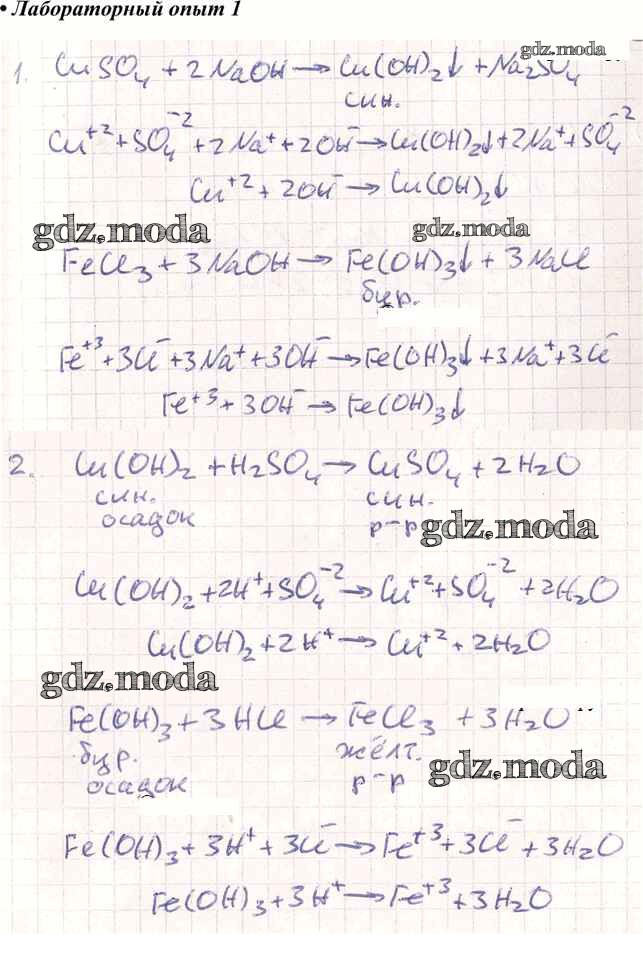 • Лабораторный опыт 1
gdz.moda
1. CuSO₄ + 2NaOH → Cu(OH)₂↓ + Na₂SO₄
син.
Cu⁺² + SO₄⁻² + 2Na⁺ + 2OH⁻ → Cu(OH)₂↓ + 2Na⁺ + SO₄⁻²
Cu⁺² + 2OH⁻ → Cu(OH)₂↓
gdz.moda gdz.moda
FeCl₃ + 3NaOH → Fe(OH)₃↓ + 3NaCl
бур.
Fe⁺³ + 3Cl⁻ + 3Na⁺ + 3OH⁻ → Fe(OH)₃↓ + 3Na⁺ + 3Cl⁻
Fe⁺³ + 3OH⁻ → Fe(OH)₃↓
2. Cu(OH)₂ + H₂SO₄ → CuSO₄ + 2H₂O
син. син.
осадок р-р
gdz.moda
Cu(OH)₂ + 2H⁺ + SO₄⁻² → Cu⁺² + SO₄⁻² + 2H₂O
Cu(OH)₂ + 2H⁺ → Cu⁺² + 2H₂O
gdz.moda
Fe(OH)₃ + 3HCl → FeCl₃ + 3H₂O
бур. жёлт.
осадок р-р
gdz.moda
Fe(OH)₃ + 3H⁺ + 3Cl⁻ → Fe⁺³ + 3Cl⁻ + 3H₂O
Fe(OH)₃ + 3H⁺ → Fe⁺³ + 3H₂O